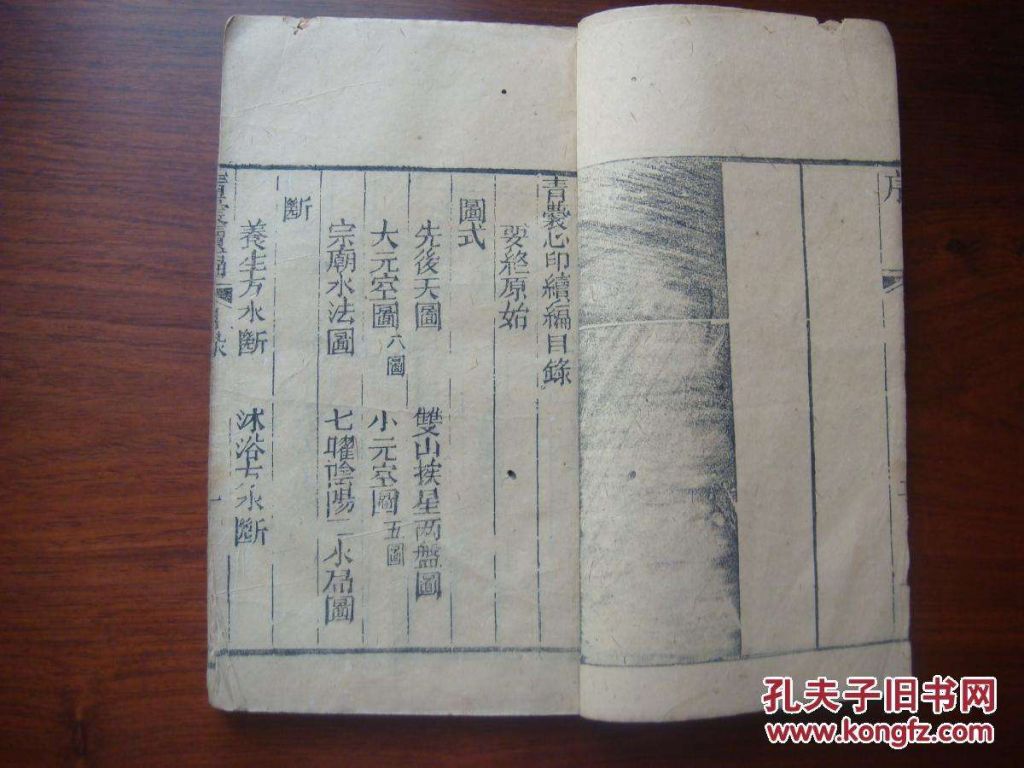 序
青囊心印續編目錄
要終原始
圖式
先後天圖　雙山挨星兩盤圖
大元空圖 八圖　小元空圖 五圖
宗廟水法圖　七曜陰陽二水局圖
斷
養生方水斷　沐浴方水斷
目錄
一
孔夫子旧书网
www.kongfz.com